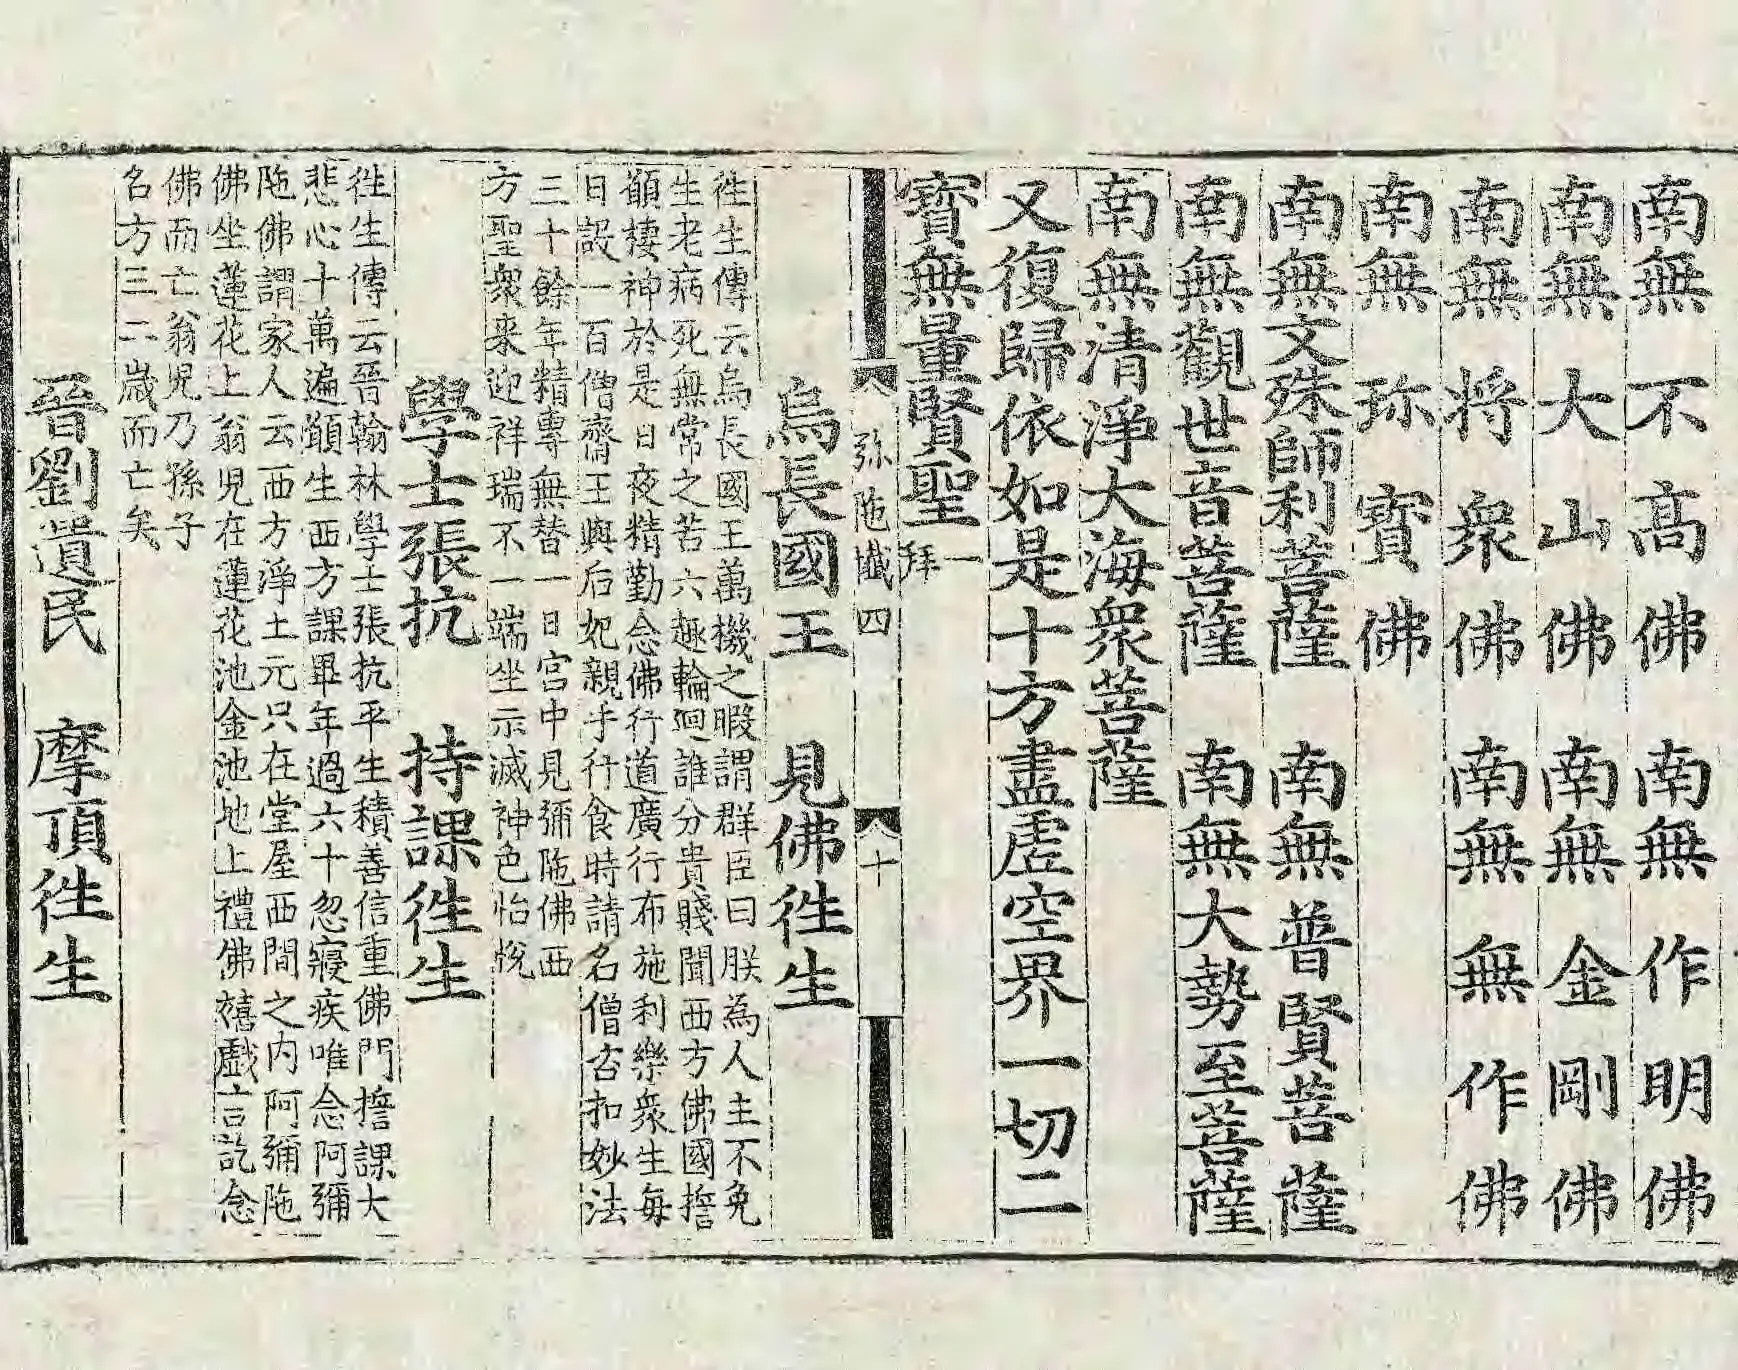 南無不高佛　南無作明佛
南無大山佛　南無金剛佛
南無將衆佛　南無無作佛
南無珎寶佛
南無文殊師利菩薩　南無普賢菩薩
南無觀世音菩薩　南無大勢至菩薩
南無清淨大海衆菩薩
又復歸依如是十方盡虛空界一切二
寶無量賢聖一拜
弥陁懺四　十
烏長國王　見佛徃生
徃生傳云烏長國王萬機之暇謂群臣曰朕為人主不免
生老病死無常之苦六趣輪迴誰分貴賤聞西方佛國擔
顉棲神於是日夜精勤念佛行道廣行布施利樂衆生每
日設一百僧齋王與后妃親手行食時請名僧咨扣妙法
三十餘年精專無替一日宮中見彌陁佛西
方聖衆来迎祥瑞不一端坐示滅神色怡悅
學士張抗　持課徃生
徃生傳云晉翰林學士張抗平生積善信重佛門擔課大
悲心十萬遍顉生西方課畢年過六十忽寢疾唯念阿彌
陁佛謂家人云西方淨土元只在堂屋西間之内阿彌陁
佛坐蓮花上翁児在蓮花池金池地上禮佛禧戲言訖念
佛而亡翁児乃孫子
名方三二歲而亡矣
晉劉遺民　摩頂徃生